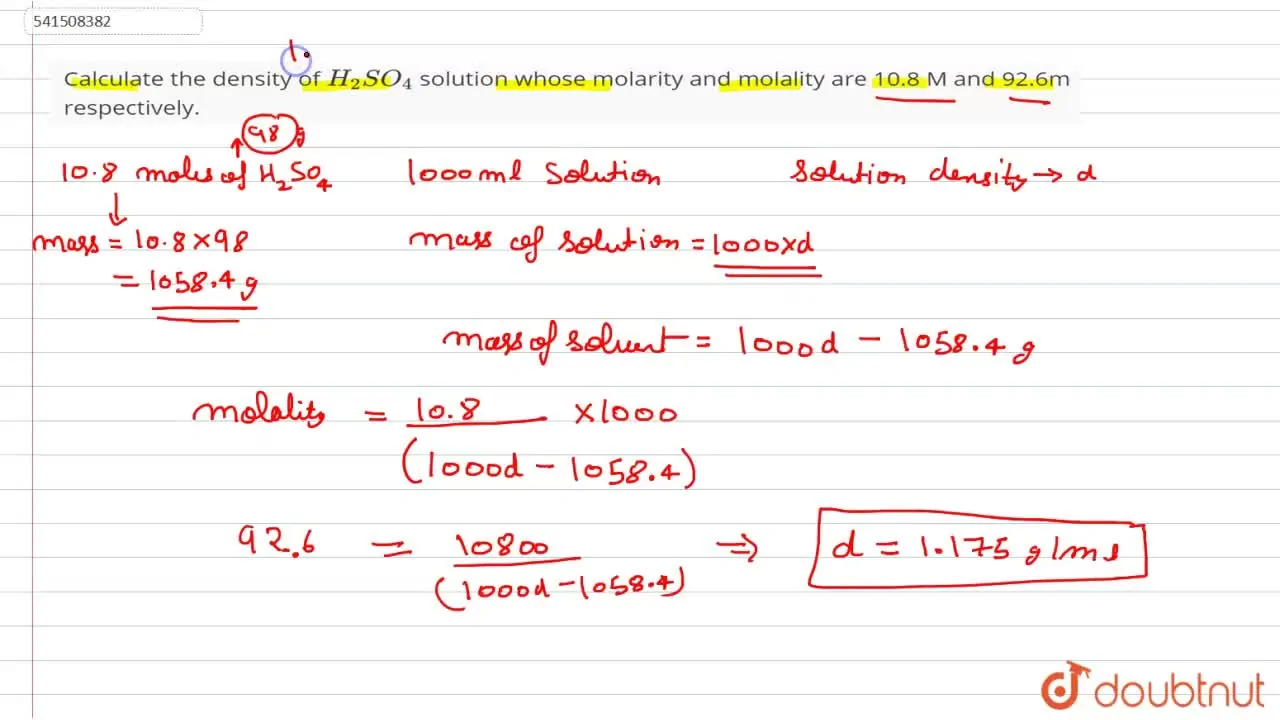 541508382
Calculate the density of H₂SO₄ solution whose molarity and molality are 10.8 M and 92.6m
respectively.
98 g
10.8 moles of H₂SO₄ 1000 ml Solution Solution density → d
↓
mass = 10.8 × 98 mass of solution = 1000×d
= 1058.4 g
mass of solvent = 1000d − 1058.4 g
molality = 10.8 / (1000d − 1058.4) × 1000
92.6 = 10800 / (1000d − 1058.4) ⇒ d = 1.175 g/ml
doubtnut